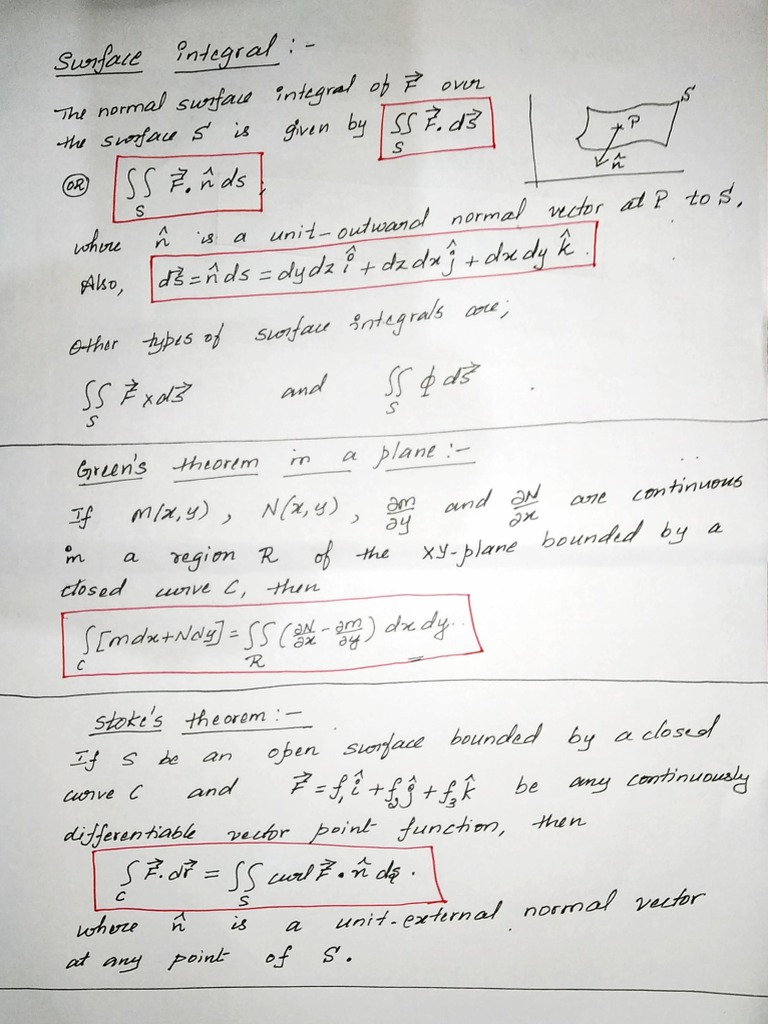 Surface integral :-
The normal surface integral of F⃗ over
the surface S is given by ∬_S F⃗ . ds⃗
(OR) ∬_S F⃗ . n̂ ds ;
S
P
n̂
where n̂ is a unit-outward normal vector at P to S.
Also, ds⃗ = n̂ ds = dydz î + dzdx ĵ + dxdy k̂ .
Other types of surface integrals are;
∬_S F⃗ x ds⃗ and ∬_S ϕ ds⃗ .
Green's theorem in a plane :-
If M(x,y) , N(x,y) , ∂M/∂y and ∂N/∂x are continuous
in a region R of the XY-plane bounded by a
closed curve C, then
∫_C [Mdx+Ndy] = ∬_R (∂N/∂x - ∂M/∂y) dx dy.
Stoke's theorem :-
If S be an open surface bounded by a closed
curve C and F⃗ = f₁ î + f₂ ĵ + f₃ k̂ be any continuously
differentiable vector point function, then
∫_C F⃗ . dr⃗ = ∬_S curl F⃗ . n̂ ds .
where n̂ is a unit-external normal vector
at any point of S.